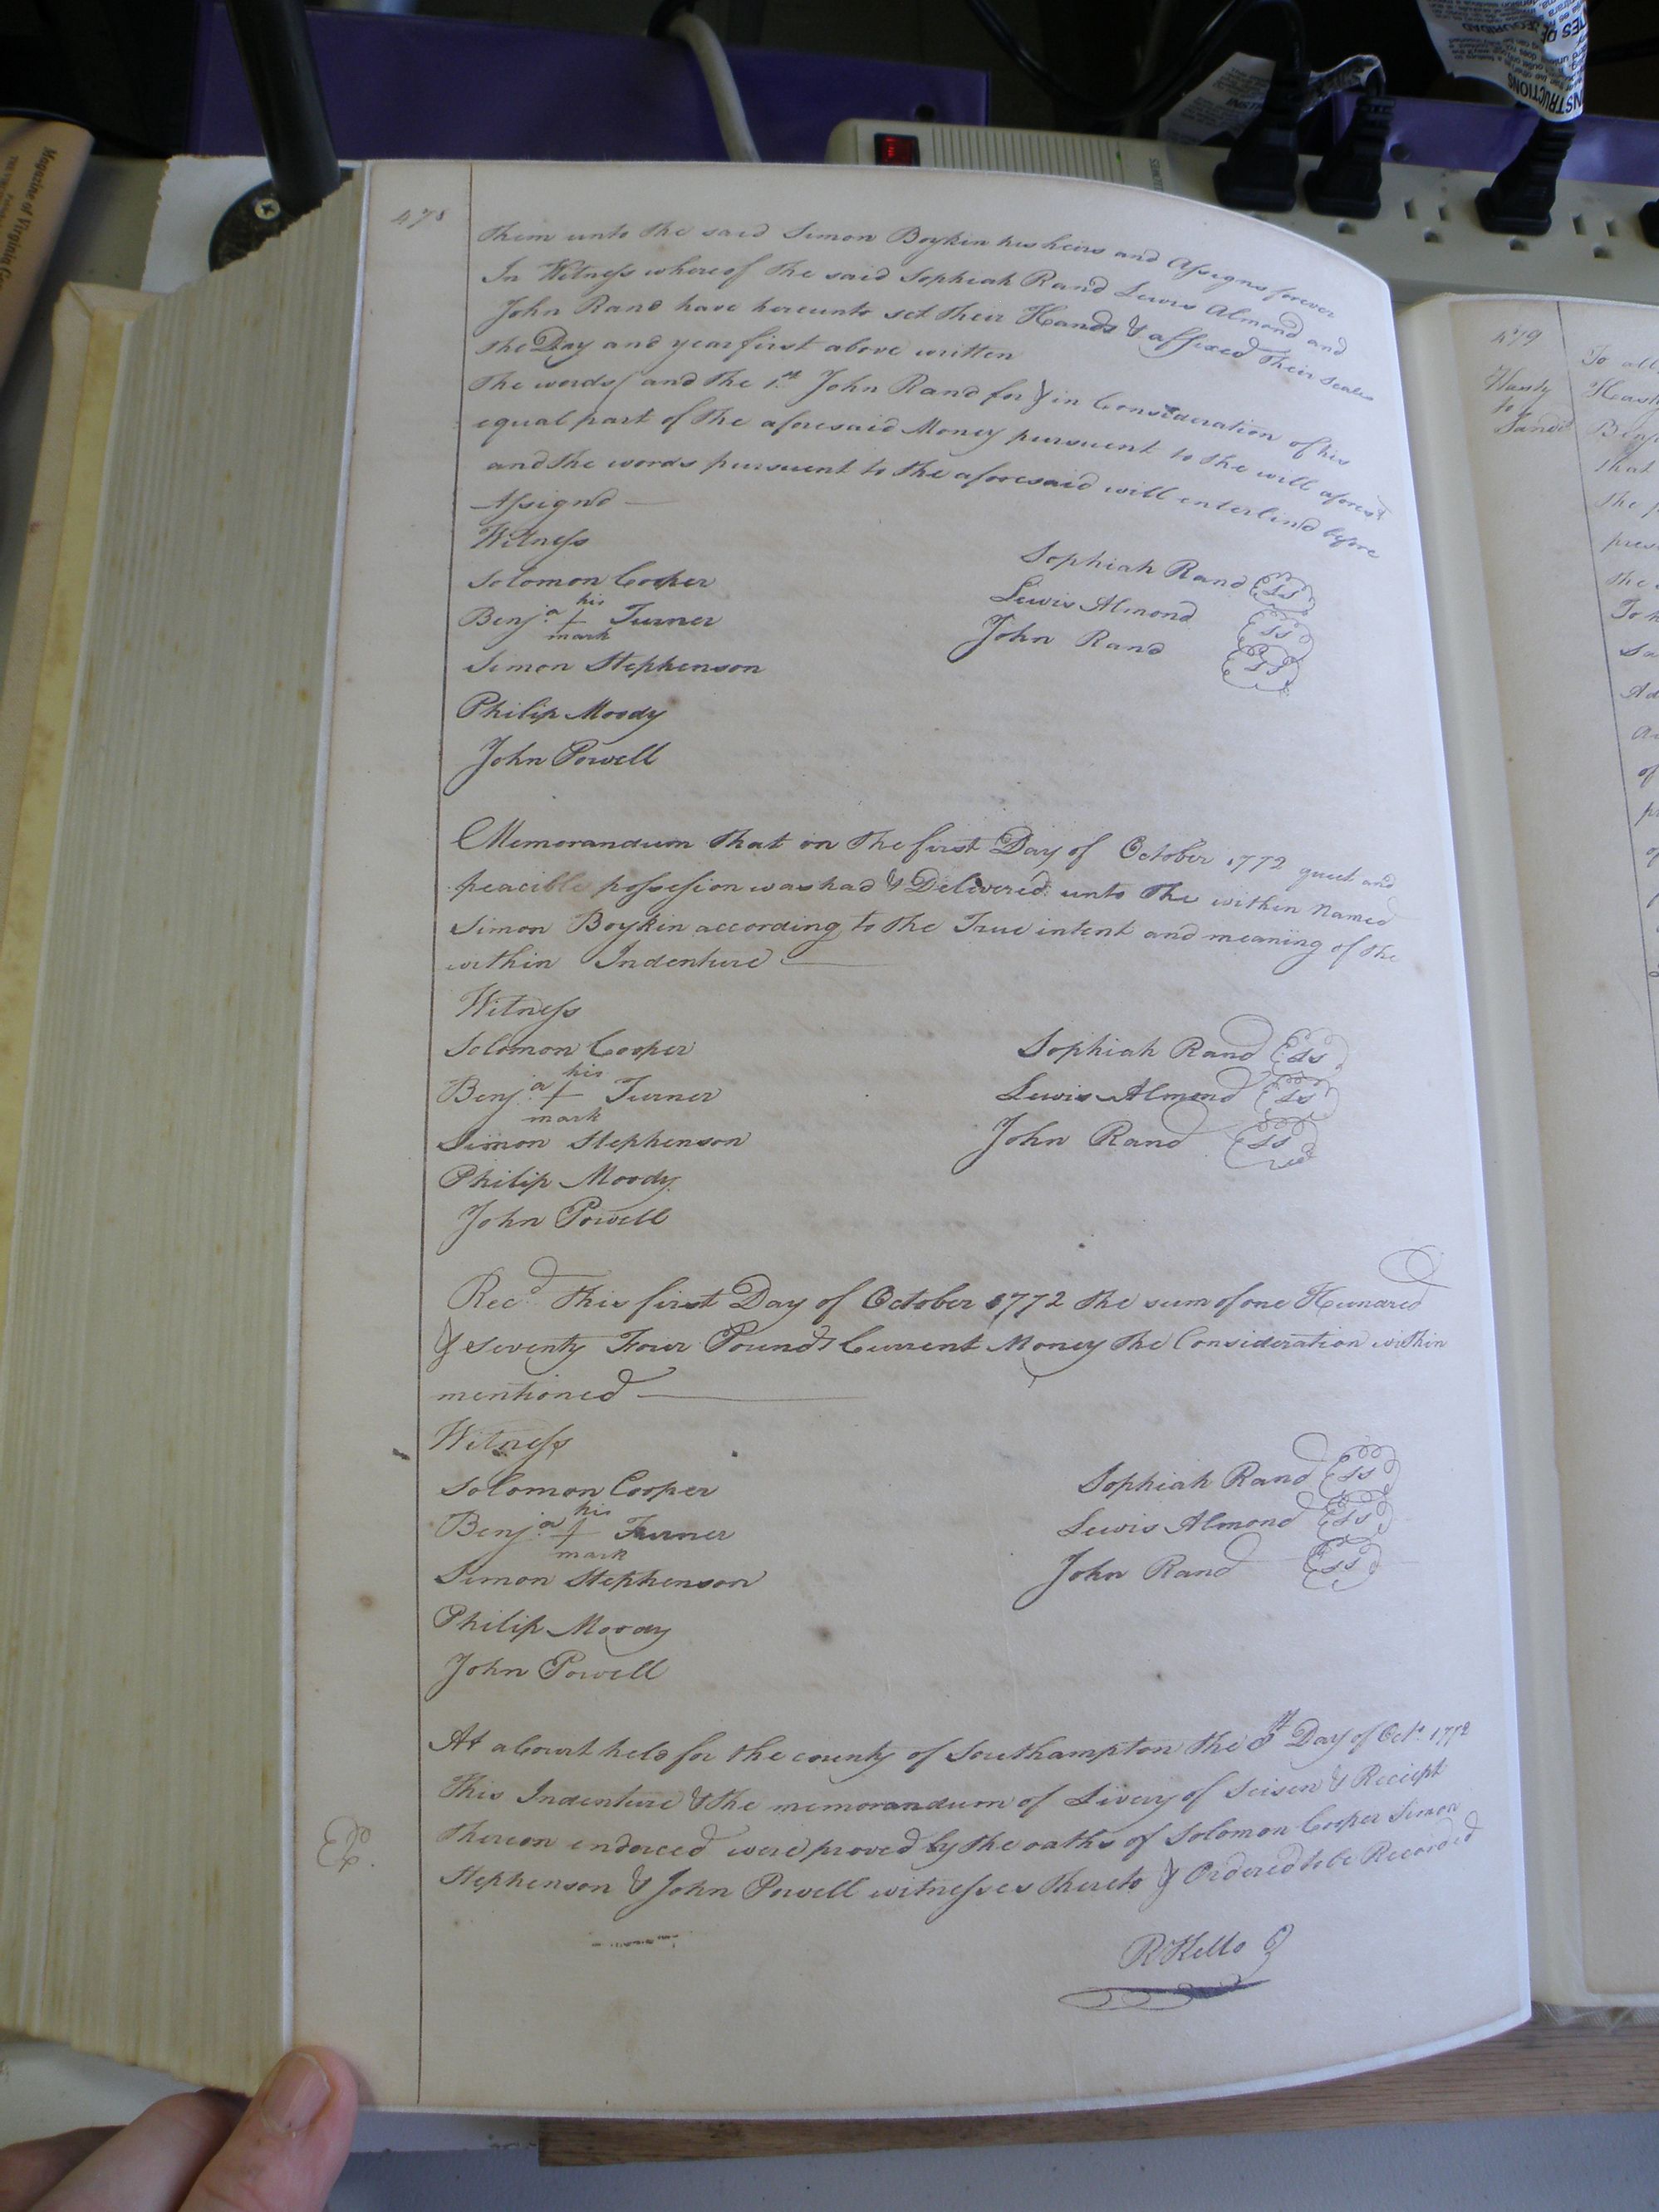 478
them unto the said Simon Boykin his heirs and Assigns forever
In Witness whereof the said Sophiah Rand Lewis Almond and
John Rand have hereunto set their Hands & affixed their Seales
the Day and year first above written
The words/ and the sd. John Rand for & in Consideration of his
equal part of the aforesaid Money pursuent to the will aforesd.
and the words pursuent to the aforesaid will enterlin'd before
Assign'd
Witness
Solomon Cooper
Sophiah Rand LS
Benj.a his + mark Turner
Lewis Almond LS
Simon Stephenson
John Rand LS
Philip Moody
John Powell
Memorandum that on the first Day of October 1772 quiet and
peacible possession was had & Delivered unto the within Named
Simon Boykin according to the True intent and meaning of the
within Indenture
Witness
Solomon Cooper
Sophiah Rand LS
Benj.a his + mark Turner
Lewis Almond LS
Simon Stephenson
John Rand LS
Philip Moody
John Powell
Rec'd this first Day of October 1772 the sum of one Hundred
& seventy Four Pounds Current Money the Consideration within
mentioned
Witness
Solomon Cooper
Sophiah Rand LS
Benj.a his + mark Turner
Lewis Almond LS
Simon Stephenson
John Rand LS
Philip Moody
John Powell
At a Court held for the county of Southampton the 8th Day of Oct. 1772
This Indenture & the memorandum of Livery of Seisen & Reciept
thereon endorced were proved by the oaths of Solomon Cooper Simon
Stephenson & John Powell witnesses thereto & Ordered to be Recorded
Ex.
R Kello
479
Hasty
to
To all
Hasty
Benj
that
the p
pres
the
To h
Sa
Ad
of
Magazine of Virginia Ge
INSTRUCTIONS